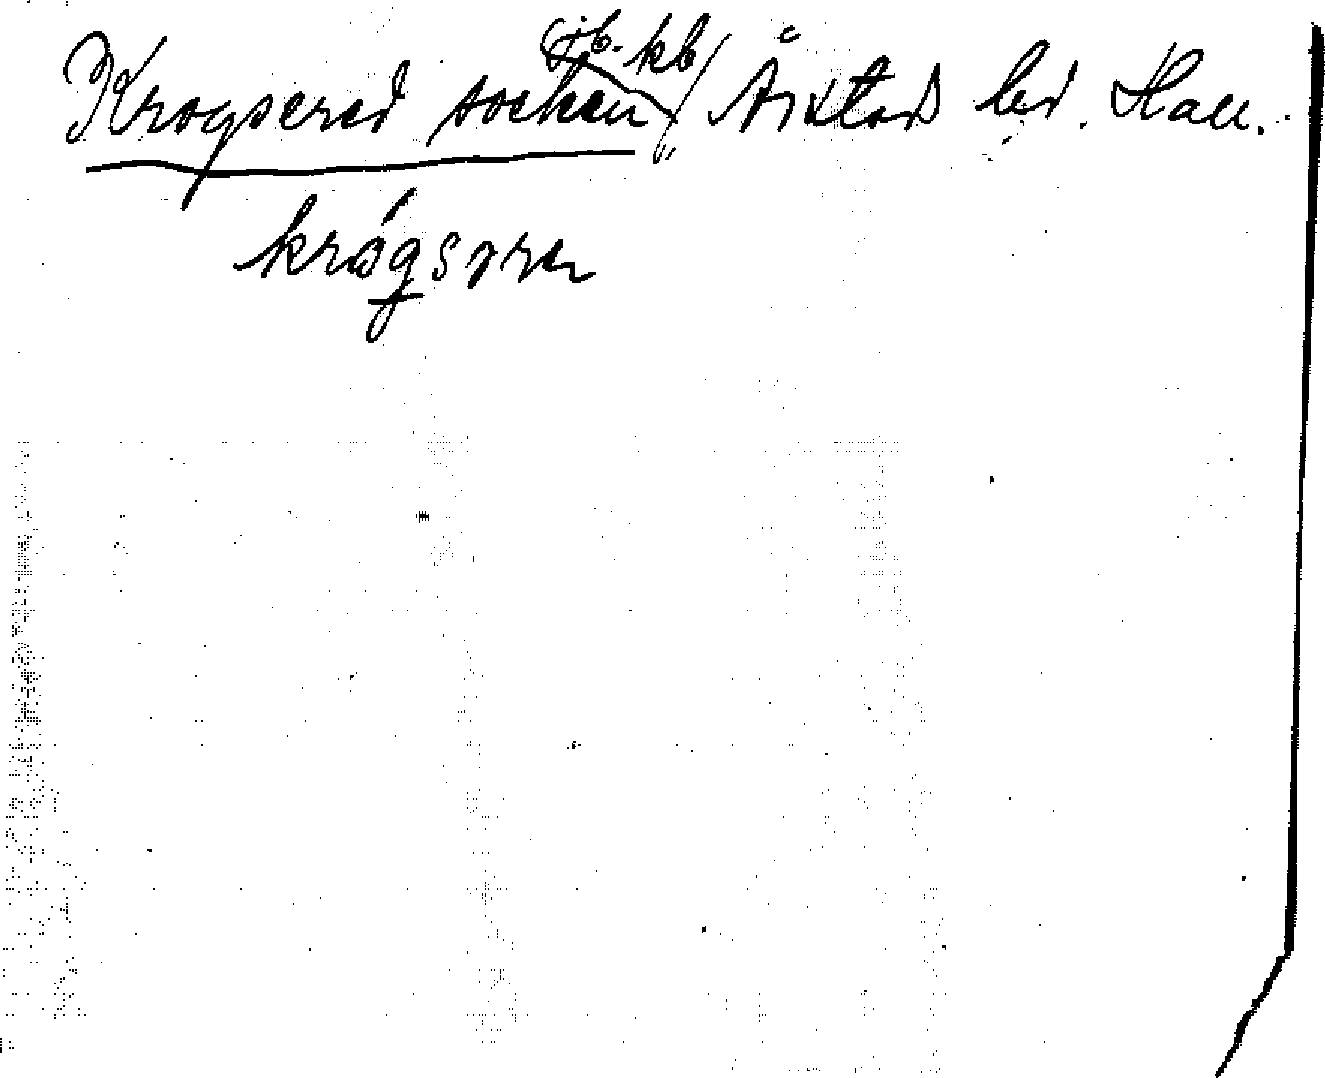 Krogsered socken Årstad hd. Hall.
krågsərn